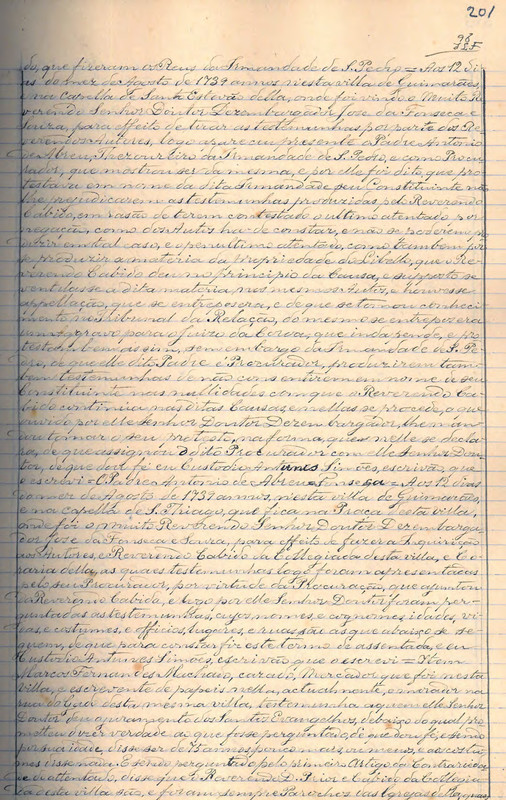 201
do, que fizeram os Reus da Irmandade de S. Pedro = Aos 12 di-
as do mez de Agosto de 1739 annos, nesta villa de Guimarães,
e na Capella de Santo Estevão della, onde foi vindo o Muito Re-
verendo Senhor Doutor Dezembargador José da Fonseca e
Souza, para effeito de tirar as testemunhas por parte dos Re-
verendos Autores, logo apareceu presente o Padre Antonio
de Abreu, Thezoureiro da Irmandade de S. Pedro, e como Procu-
rador, que mostrou ser da mesma, e por elle foi dito, que pro-
testava em nome da dita Irmandade seu Constituinte não
lhe prejudicarem as testemunhas produzidas pelo Reverendo
Cabido, em razão de terem contestado o ultimo atentado por
negação, como dos Autos ha de constar, e não se poderem
em tal caso, e o penultimo atentado, como tambem
se produzir a materia da propriedade do Libello, que o Re-
verendo Cabido deu no principio da Causa, e supposto se
a dita materia, nos mesmos Autos, e houvesse
appellação, que se entrepozera, e de que se tomou conheci-
mento no tribunal da Relação, do mesmo se entrepozera
um Aggravo para o Juizo da Coroa, que inda pende, e pro-
testa tambem assim, sem embargo da Irmandade de S. Pe-
dro, de que elle dito Padre é Procurador, produzirem tam-
bem testemunhas de não consentirem em nome de seu
Constituinte nas nullidades com que o Reverendo Ca-
bido continua nas ditas Causas, e nellas se procede, o que
ouvido por elle Senhor Doutor Dezembargador, lhe man-
dou tomar o seu protesto, na forma, que nelle se decla-
ra, de que assignou o dito Procurador com elle Senhor Dou-
tor, de que dou fé eu Custodio Antunes Simões, escrivão, que
o escrevi = O Padre Antonio de Abreu = Fonseca = Aos 12 dias
do mez de Agosto de 1739 annos, nesta villa de Guimarães,
e na capella de S. Thiago, que fica na Praça desta villa,
onde foi o muito Reverendo Senhor Doutor Dezembarga-
dor José da Fonseca e Souza, para effeito de fazer a Inquirição
aos Autores, o Reverendo Cabido da Collegiada desta villa, e Co-
raria della, as quaes testemunhas logo foram apresentadas
pelo seu Procurador, por virtude da Procuração, que apontou
o Reverendo Cabido, e logo por elle Senhor Doutor foram per-
guntadas as testemunhas, cujos nomes, e cognomes, idades, vi-
das, e costumes, e officios, lugares, e ruas são as que abaixo se se-
guem, de que para constar fiz este termo de assentada, e eu
Custodio Antunes Simões, escrivão, que o escrevi = Item
Marcos Fernandes Machado, cazado, Mercador que foi nesta
villa, e escrevente de papeis nella, actualmente, e morador na
rua desta mesma villa, testemunha a quem elle Senhor
Doutor deu o juramento dos Santos Evangelhos, debaixo do qual pro-
metteu dizer verdade ao que fosse perguntado, de que dou fé, e sendo
por sua idade, disse ser de annos, pouco mais ou menos, e aos costu-
mes disse nada. E sendo perguntado pelo primeiro Artigo da Contrariedade
e do attentado, disse que o Reverendo D. Prior e Cabido da Collegia-
da desta villa são, e foram sempre Parochos das Egrejas